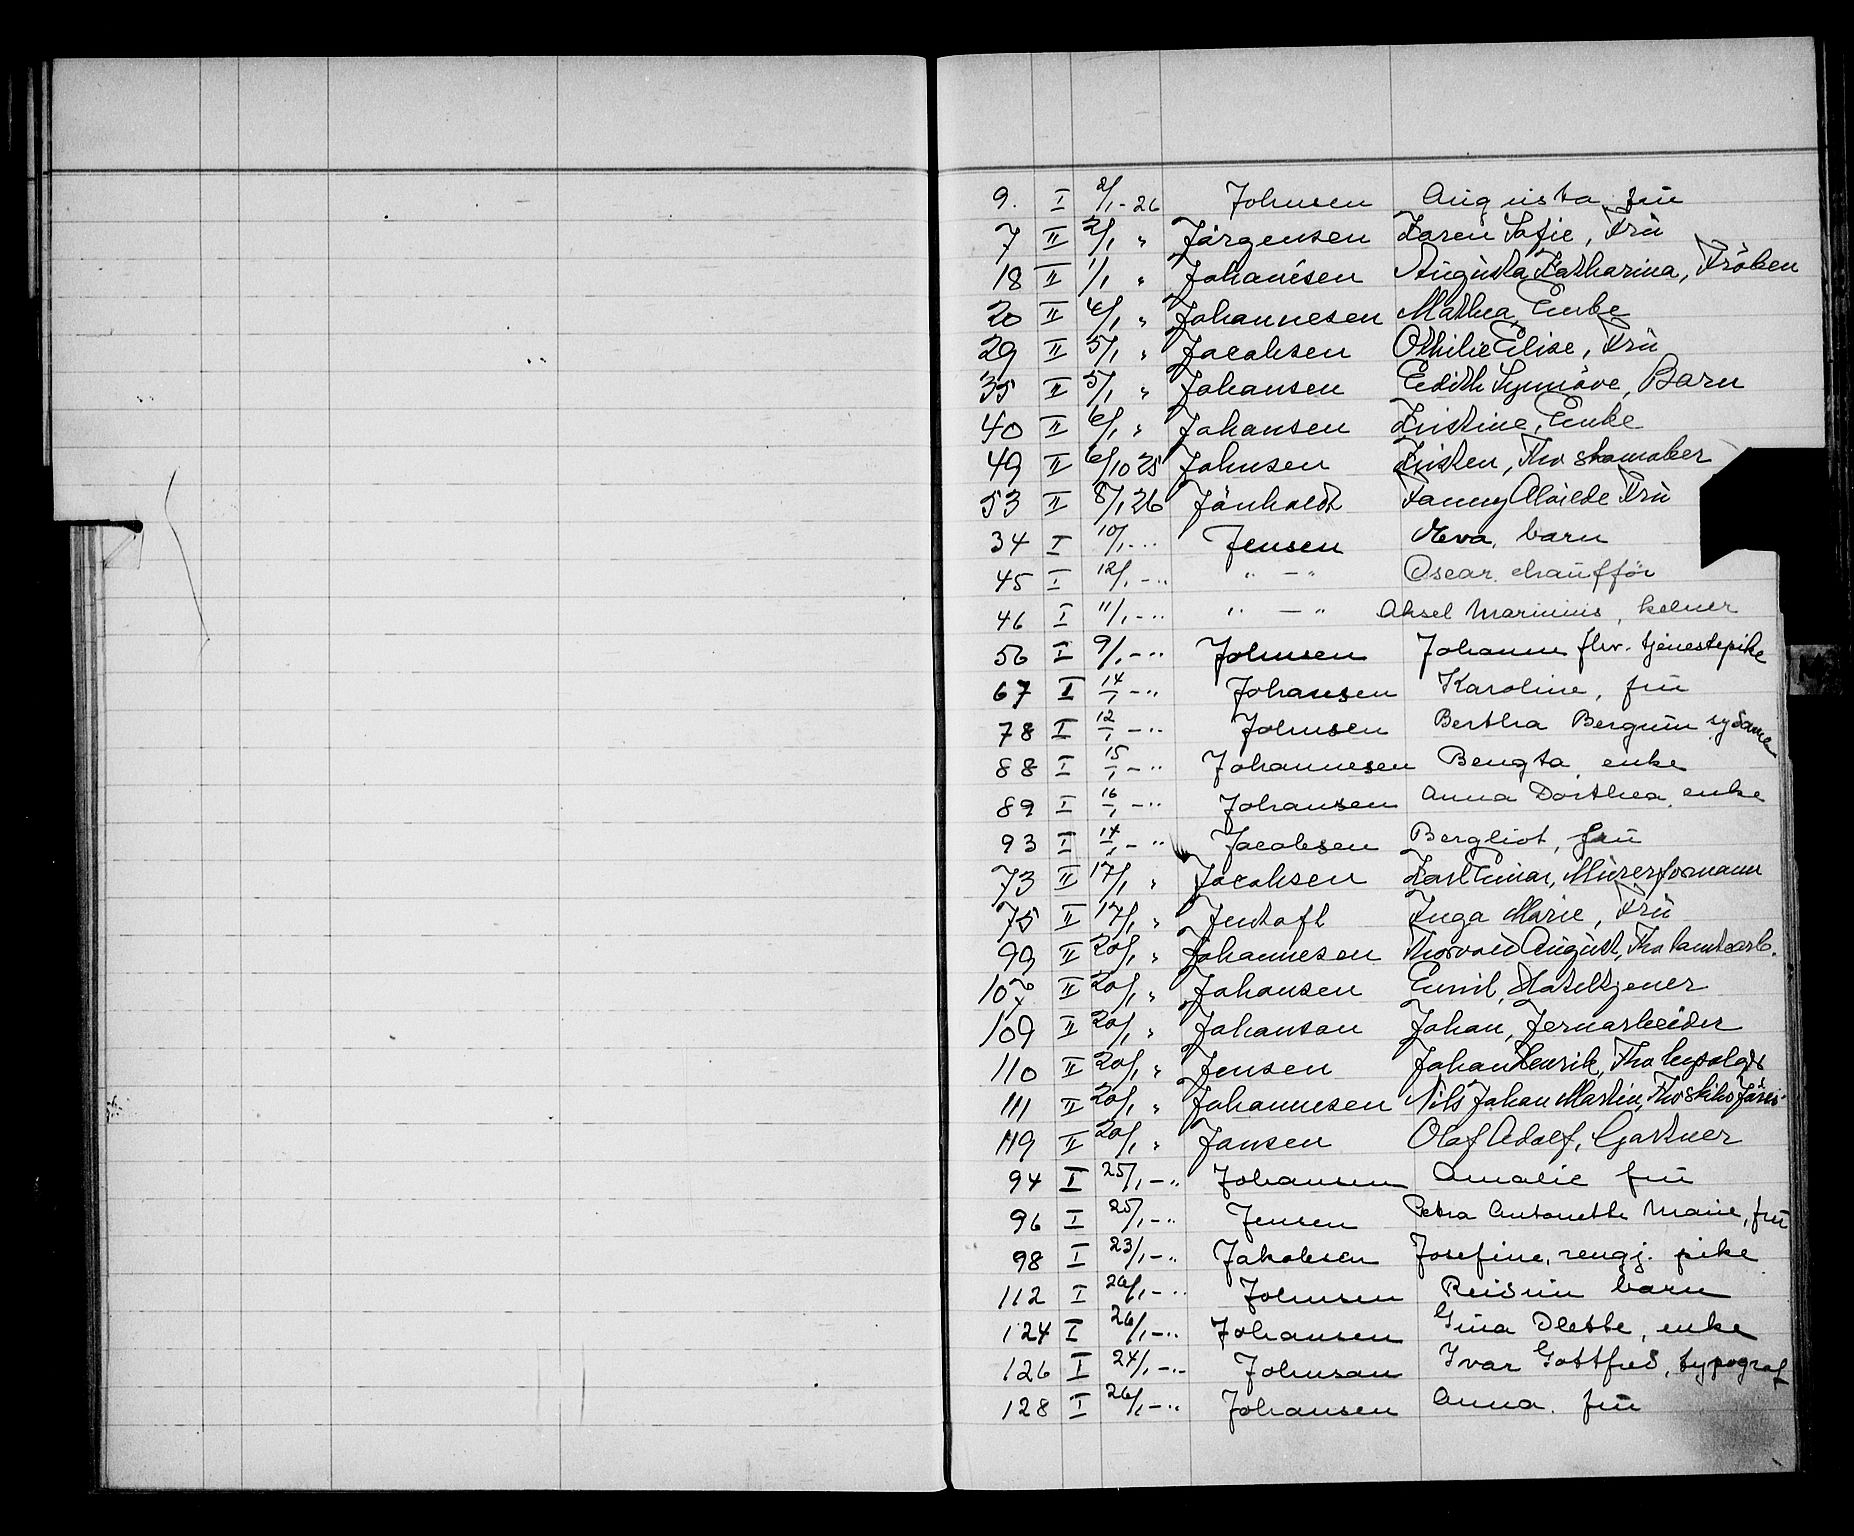 9. I 2/1-26 Johnsen Augusta, fru
7 II 2/1 " Jörgensen Karen Sofie, Fru
18 II 1/1 " Johansen Augusta Katharina, Fröken
20 II 4/1 " Johannesen Mathea, Enke
29 II 5/1 " Jacobsen Othilie Elise, Fru
35 II 5/1 " Johansen Edith Synnöve, Barn
40 II 6/1 " Johansen Kristine, Enke
49 II 6/10 25 Johnsen Kristen, Fhv skomaker
53 II 8/1 26 Jönholdt Fanny Alvilde Fru
34 I 10/1 - " Jensen Eva, barn
45 I 12/1 - " " - " Oscar, chaufför
46 I 11/1 - " " - " Aksel Marinius, kelner
56 I 9/1 - " Johnsen Johanne fhv. tjenestepike
67 I 14/1 - " Johansen Karoline, fru
78 I 12/1 - " Johnsen Bertha Bergum sydame
88 I 15/1 - " Johannesen Bengta, enke
89 I 16/1 - " Johansen Anna Dorthea, enke
93 I 14/1 - " Jacobsen Bergliot, fru
73 II 17/1 " Jacobsen Karl Einar, Murerformann
75 II 17/1 " Jentoft Inga Marie, Fru
99 II 20/1 " Johannesen Thorvald August, Fhv
107 II 20/1 " Johansen Emil, Hotelltjener
109 II 20/1 " Johanson Johan, Jernarbeider
110 II 20/1 " Jensen Johan Henrik, Fhv
111 II 20/1 " Johannesen Nils Johan Martin, Fhv
119 II 20/1 " Jansen Olaf Adolf, Gartner
94 I 25/1 - " Johansen Amalie fru
96 I 25/1 - " Jensen Petra Antonette Marie, fru
98 I 23/1 - " Jakobsen Josefine, rengj. pike
112 I 26/1 - " Johnsen Reidun barn
124 I 26/1 - " Johansen Gina Olette, enke
126 I 24/1 - " Johnson Ivar Gottfred, typograf
128 I 26/1 - " Johansen Anna, fru